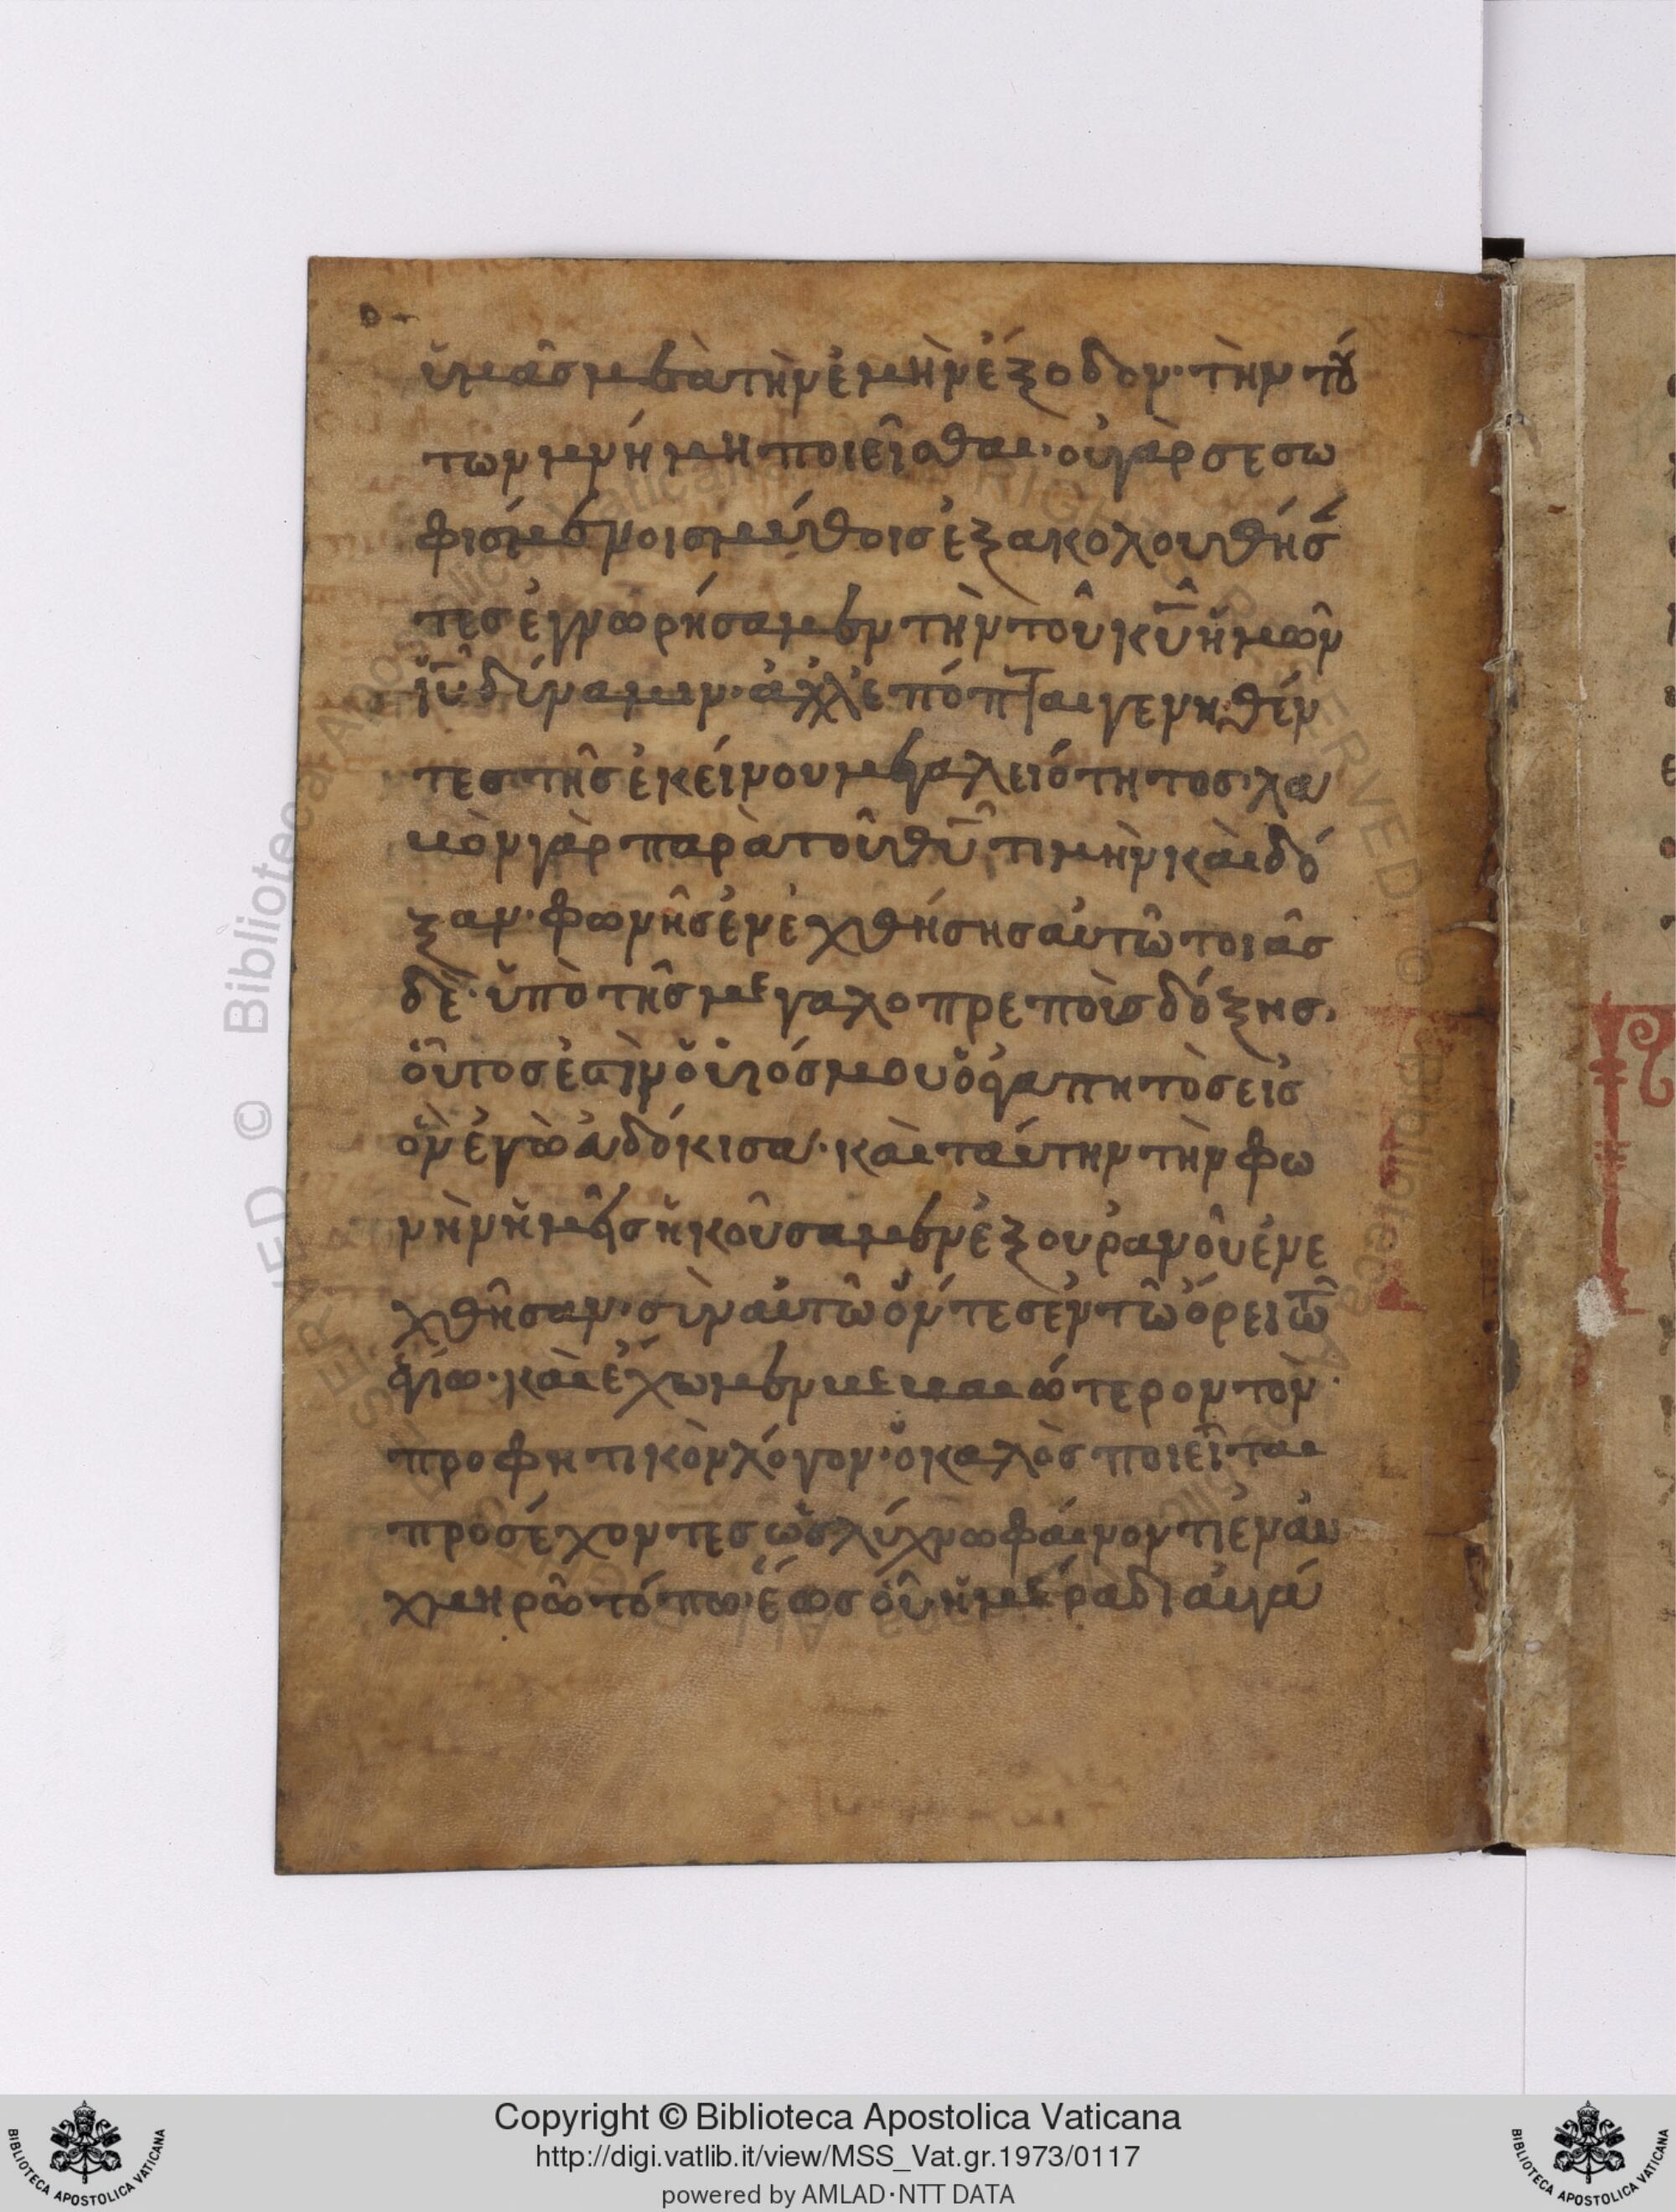 ὑμᾶς μετὰ τὴν ἐμὴν ἔξοδον· τὴν τού
των μνήμη ποιεῖσθαι· οὐ γὰρ σεσω
φισμένοις μύθοις ἐξακολουθήσ
τες ἐγνωρήσαμεν τὴν τοῦ κ̅υ̅ ἡμῶν
ι̅υ̅ δύναμιν· ἀλλ' ἐπόπται γενηθέν
τες τῆς ἐκείνου μεγαλειότητος· λα
βὸν γὰρ παρὰ τοῦ θ̅υ̅ τιμὴν καὶ δό
ξαν· φωνῆς ἐνεχθήσης αὐτῶ τοιᾶσ
δὲ· ὑπὸ τῆς μεγαλοπρεποὺς δόξης·
οὗτος ἐστὶν ὁ υἱός μου ὁ ἀγαπητὸς εἰς
ὃν ἐγὼ εὐδόκισα· καὶ ταύτην τὴν φω
νὴν ἡμεῖς ἠκοῦσαμεν ἐξ οὐρανοῦ ἐνε
χθῆσαν· σὺν αὐτῶ ὄντες ἐν τῶ όρει τῶ
ἁγίω· καὶ ἔχωμεν βεβαιώτερον τὸν
προφητικὸν λόγον· ὁ καλὸς ποιεῖται
προσέχοντες ὡς λύχνω φαίνοντι ἐν αὐ
χμηρῶ τόπω· ἕως οὗ ἡμέρα διαυγά
Copyright © Biblioteca Apostolica Vaticana
http://digi.vatlib.it/view/MSS_Vat.gr.1973/0117
powered by AMLAD·NTT DATA
BIBLIOTECA APOSTOLICA VATICANA
BIBLIOTECA APOSTOLICA VATICANA